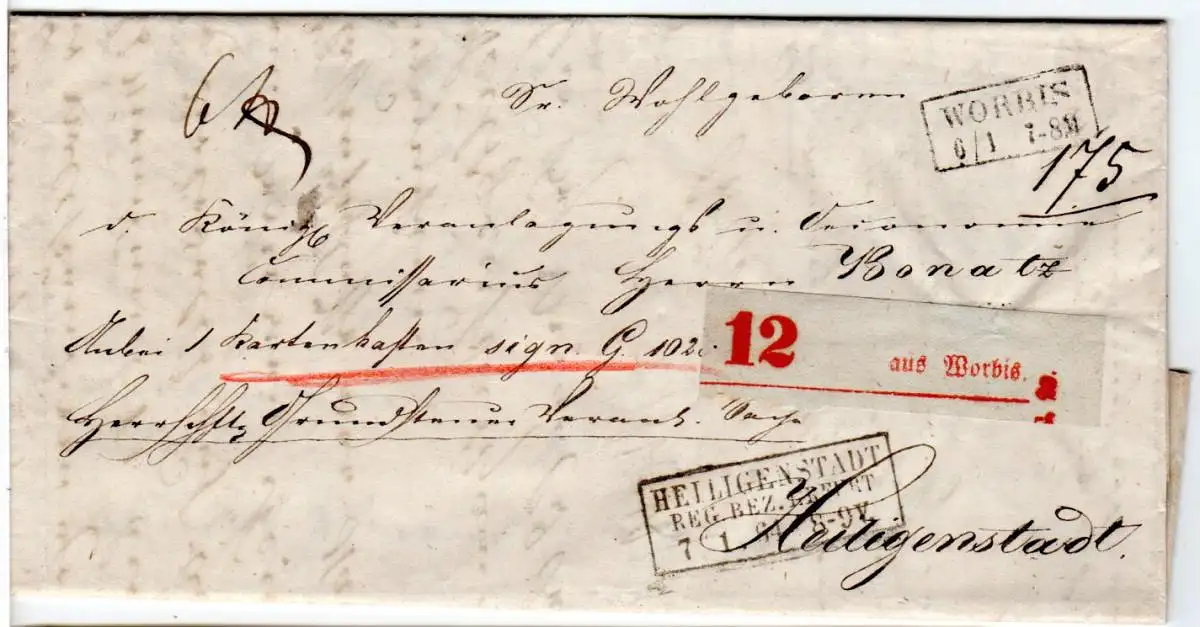 Sr. Wohlgeboren
WORBIS
6/1 7-8M
175
d. Königl Veranlagungs u. Oeconomie
Commissarius Herrn Bonatz
Anbei 1 Kartenkasten sign. G. 102.
12 aus Worbis.
Herrschftl Grundsteuer Veranl. Sache
HEILIGENSTADT
REG. BEZ. ERFURT
7 1 8-9V.
Heiligenstadt.